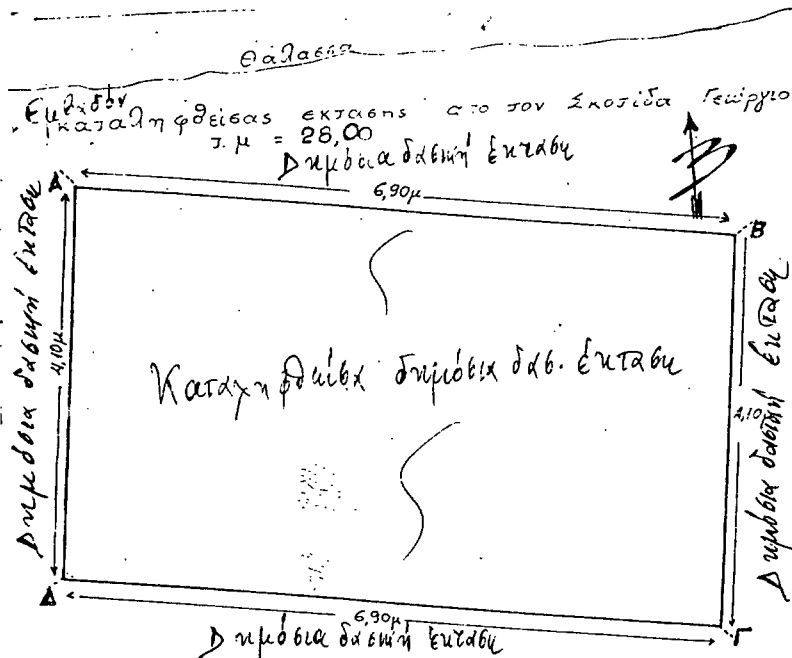 Θάλασσα
Εμβαδόν
καταληφθείσας εκτασης απο τον Σκοτίδα Γεώργιο
τ.μ = 28,00
Δημόσια δασική έκταση
Α
6,90μ
Β
Δημόσια δασική έκταση
4,10μ
Καταληφθείσα δημόσια δασ. έκταση
4,10μ
Δημόσια δασική έκταση
Δ
6,90μ
Γ
Δημόσια δασική έκταση